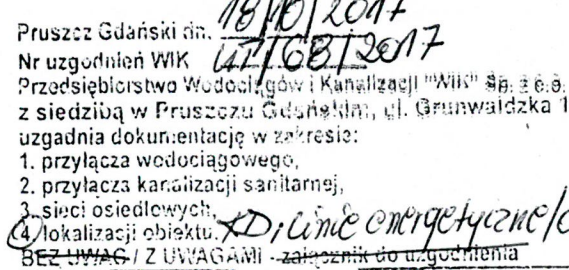 Pruszcz Gdański dn. 18/10/2017
Nr uzgodnień WIK UZ/68/2017
Przedsiębiorstwo Wodociągów i Kanalizacji "WIK" Sp. z o.o.
z siedzibą w Pruszczu Gdańskim, ul. Grunwaldzka 1
uzgadnia dokumentację w zakresie:
1. przyłącza wodociągowego,
2. przyłacza kanalizacji sanitarnej,
3. sieci osiedlowych,
4. lokalizacji obiektu. KD i linie energetyczne/
BEZ UWAG / Z UWAGAMI - załącznik do uzgodnienia